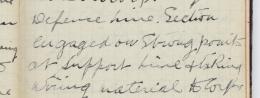 Defence line. Section
engaged on Strong points
at Support line & taking
wiring material to Corps